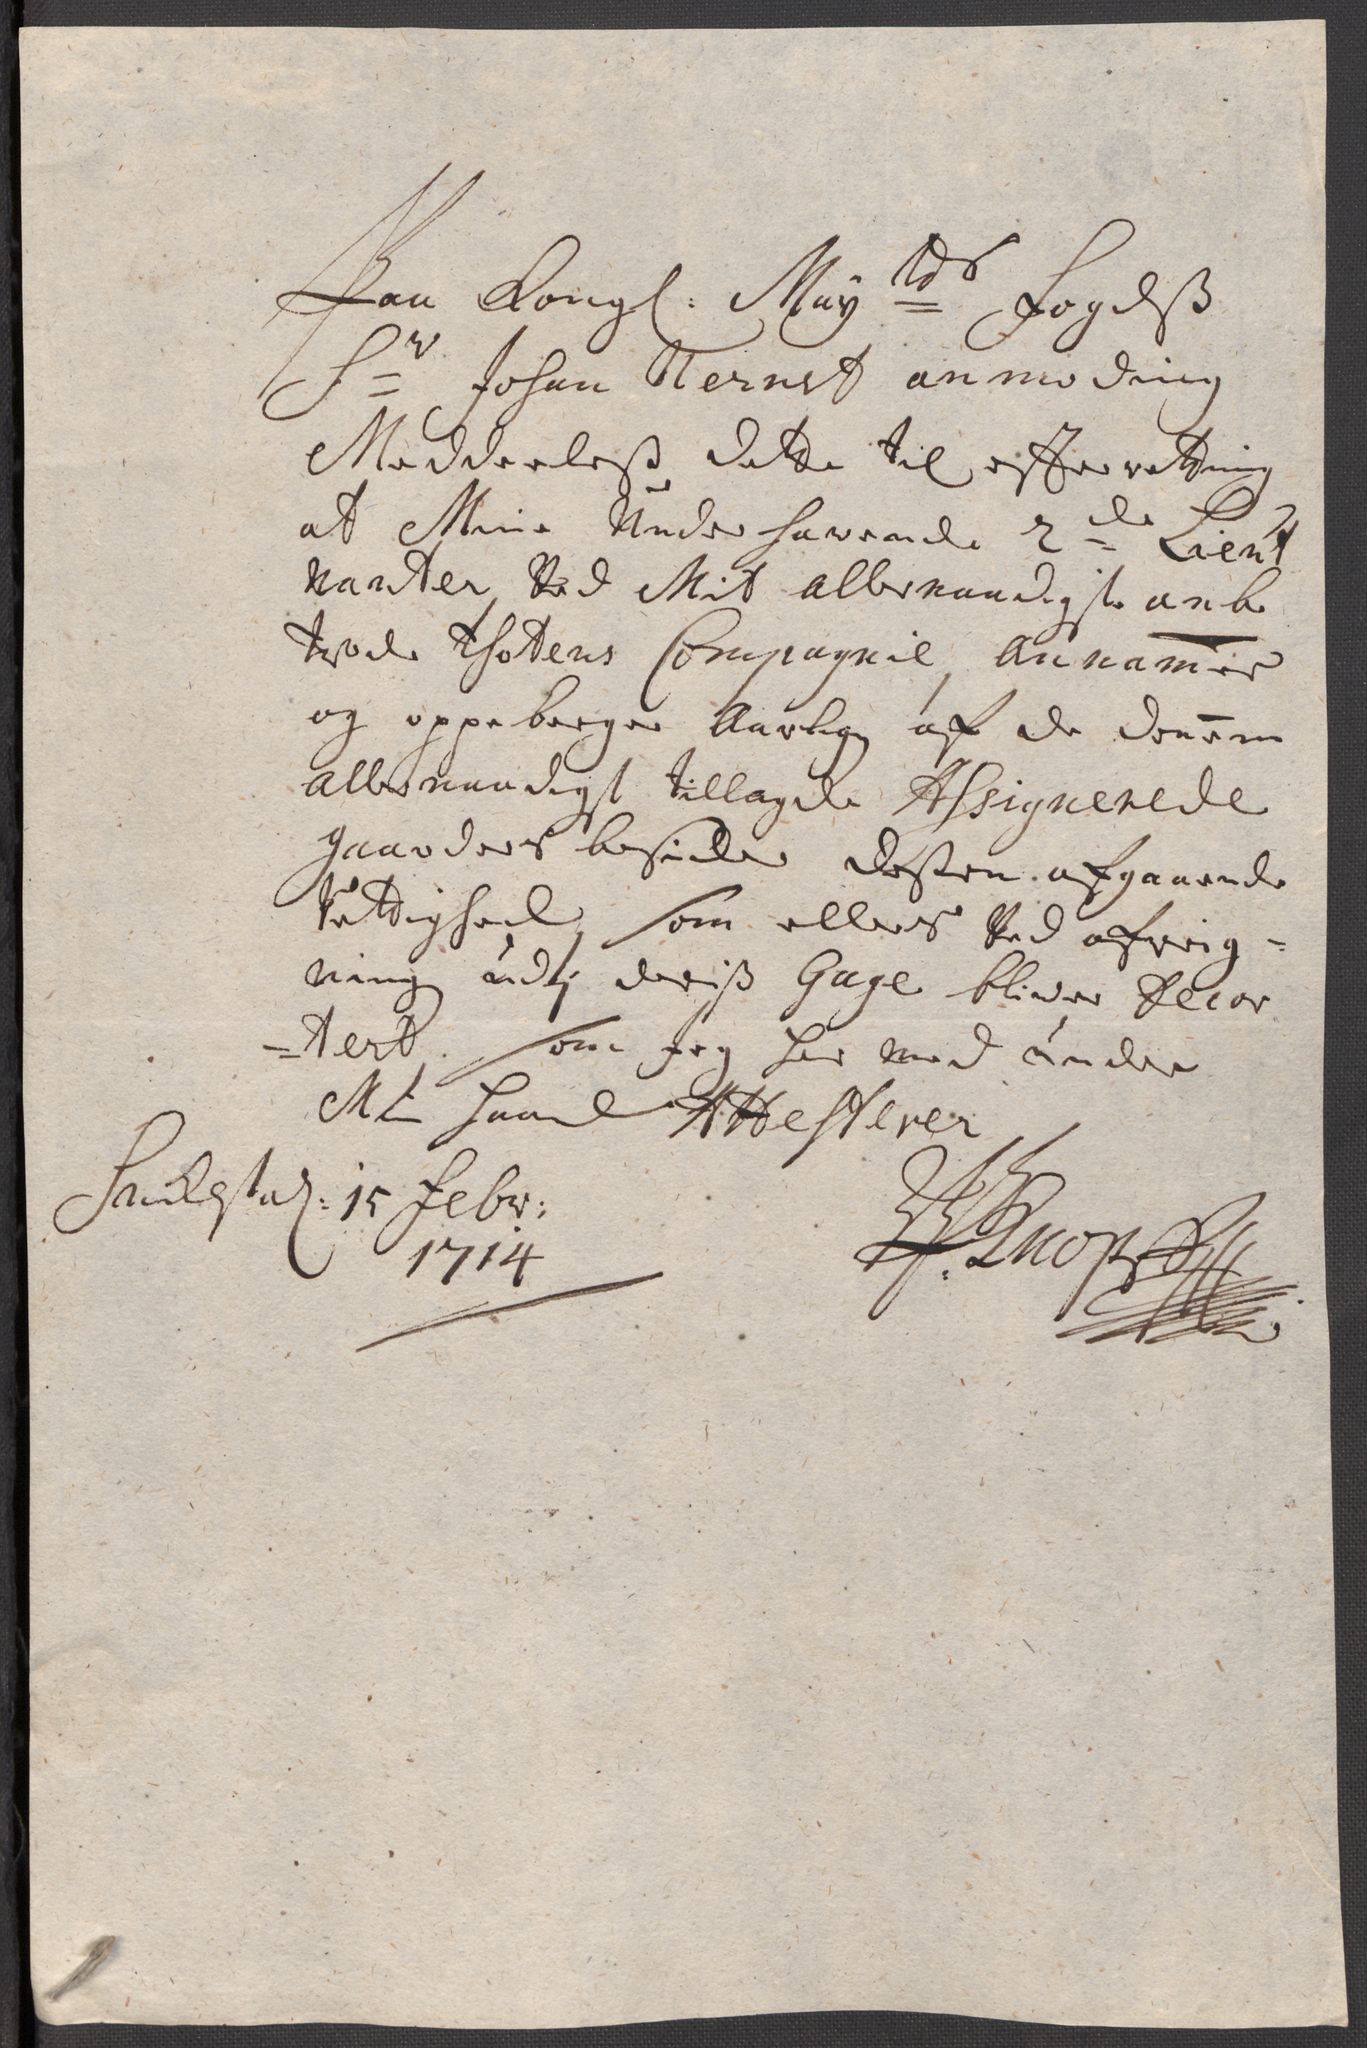 Paa Kongl: May tds Fogedß
Sr Johan Nernst anmoding
Meddeeleß dette til effterretning
at Mine Underhavende 2de Lieut
nanter, Ved Mit allernaadigst anbe
troede thotens Compagnie, Annammer
og oppebærger Aarlig af de dennem
allernaadigst tillagde Assignerede
gaarders besidder desten afgaaende
Rettighed, som ellers Ved afreig=
ning udj deriß Gage bliver decor
=tert. som jeg her med under
Mín haand Attesterer
15 Febr:
1714
Knopff